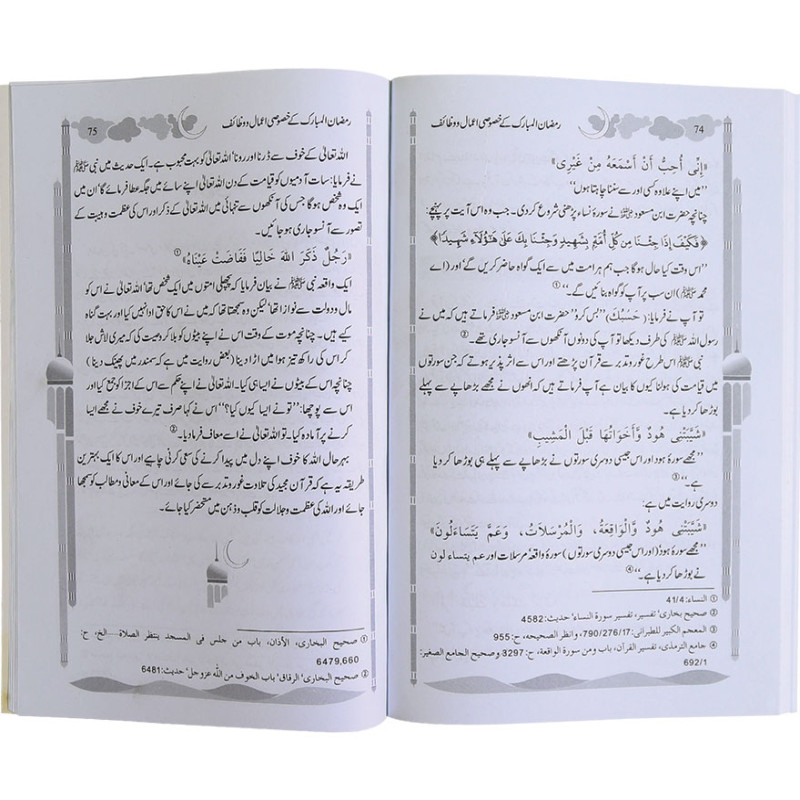 74 رمضان المبارک کے خصوصی اعمال و وظائف
«إِنِّى أُحِبُّ أَنْ أَسْمَعَهُ مِنْ غَيْرِى»
”میں اپنے علاوہ کسی اور سے سننا چاہتا ہوں“
چنانچہ حضرت ابن مسعود رضی اللہ عنہ نے سورۂ نساء پڑھنی شروع کر دی۔ جب وہ اس آیت پر پہنچے:
﴿فَكَيْفَ إِذَا جِئْنَا مِن كُلِّ أُمَّةٍ بِشَهِيدٍ وَجِئْنَا بِكَ عَلَىٰ هَٰؤُلَاءِ شَهِيدًا﴾
”اس وقت کیا حال ہو گا جب ہم ہر امت میں سے ایک گواہ حاضر کریں گے اور (اے
محمد ﷺ) ان سب پر آپ کو گواہ بنائیں گے۔“①
تو آپ نے فرمایا: (حَسْبُكَ) ”بس کرو“ حضرت ابن مسعود رضی اللہ عنہ فرماتے ہیں کہ میں نے
رسول اللہ ﷺ کی طرف دیکھا تو آپ کی دونوں آنکھوں سے آنسو جاری تھے۔②
نبی ﷺ اس طرح غور و تدبر سے قرآن پڑھتے اور اس سے اثر پذیر ہوتے کہ جن سورتوں
میں قیامت کی ہولناکیوں کا بیان ہے آپ فرماتے ہیں کہ انھوں نے مجھے بڑھاپے سے پہلے
بوڑھا کر دیا ہے۔
«شَيَّبَتْنِى هُودٌ وَّأَخَوَاتُهَا قَبْلَ الْمَشِيبِ»
”مجھے سورۂ ہود اور اس جیسی دوسری سورتوں نے بڑھاپے سے پہلے ہی بوڑھا کر دیا
ہے۔“③
دوسری روایت میں ہے:
«شَيَّبَتْنِى هُودٌ وَّالْوَاقِعَةُ، وَالْمُرْسَلَاتُ، وَعَمَّ يَتَسَاءَلُونَ»
”مجھے سورۂ ہود (اور اس جیسی دوسری سورتوں) سورۂ واقعہ مرسلات اور عم یتساءلون
نے بوڑھا کر دیا ہے۔“④
① النساء: 41/4
② صحیح بخاری، تفسیر، تفسیر سورة النساء، حدیث: 4582
③ المعجم الکبیر للطبرانی: 790/276/17، وانظر الصحیحہ، ح: 955
④ جامع الترمذی، تفسیر القرآن، باب ومن سورة الواقعة، ح: 3297 وصحیح الجامع الصغیر:
692/1
رمضان المبارک کے خصوصی اعمال و وظائف 75
اللہ تعالیٰ کے خوف سے ڈرنا اور رونا، اللہ تعالیٰ کو بہت محبوب ہے۔ ایک حدیث میں نبی ﷺ
نے فرمایا: سات آدمیوں کو قیامت کے دن اللہ تعالیٰ اپنے سائے میں جگہ عطا فرمائے گا، ان میں
ایک وہ شخص ہو گا جس کی آنکھوں سے تنہائی میں اللہ تعالیٰ کے ذکر اور اس کی عظمت و ہیبت کے
تصور سے آنسو جاری ہو جائیں۔
«رَجُلٌ ذَكَرَ اللّٰهَ خَالِيًا فَفَاضَتْ عَيْنَاهُ»①
ایک واقعہ نبی ﷺ نے بیان فرمایا کہ پچھلی امتوں میں ایک شخص تھا، اللہ تعالیٰ نے اس کو
مال و دولت سے نوازا تھا، لیکن وہ سمجھتا تھا کہ میں نے اس کا حق ادا نہیں کیا اور بہت گناہ
کیے ہیں۔ چنانچہ موت کے وقت اس نے اپنے بیٹوں کو بلا کر وصیت کی کہ میری لاش جلا
کر اس کی راکھ تیز ہوا میں اڑا دینا (بعض روایت میں ہے کہ سمندر میں پھینک دینا)
چنانچہ اس کے بیٹوں نے ایسا ہی کیا۔ اللہ تعالیٰ نے اپنے حکم سے اس کے اجزا کو جمع کیا اور
اس سے پوچھا: ”تو نے ایسا کیوں کیا؟“ اس نے کہا صرف تیرے خوف نے مجھے ایسا
کرنے پر آمادہ کیا۔ تو اللہ تعالیٰ نے اسے معاف فرما دیا۔②
بہرحال اللہ کا خوف اپنے دل میں پیدا کرنے کی سعی کرنی چاہیے اور اس کا ایک بہترین
طریقہ یہ ہے کہ قرآن مجید کی تلاوت غور و تدبر سے کی جائے اور اس کے معانی و مطالب کو سمجھا
جائے اور اللہ کی عظمت و جلالت کو قلب و ذہن میں متحضر کیا جائے۔
① صحیح البخاری، الأذان، باب من جلس فی المسجد ینتظر الصلاة.....الخ، ح:
6479,660
② صحیح البخاری، الرقاق، باب الخوف من اللّٰه عزوجل، حدیث: 6481